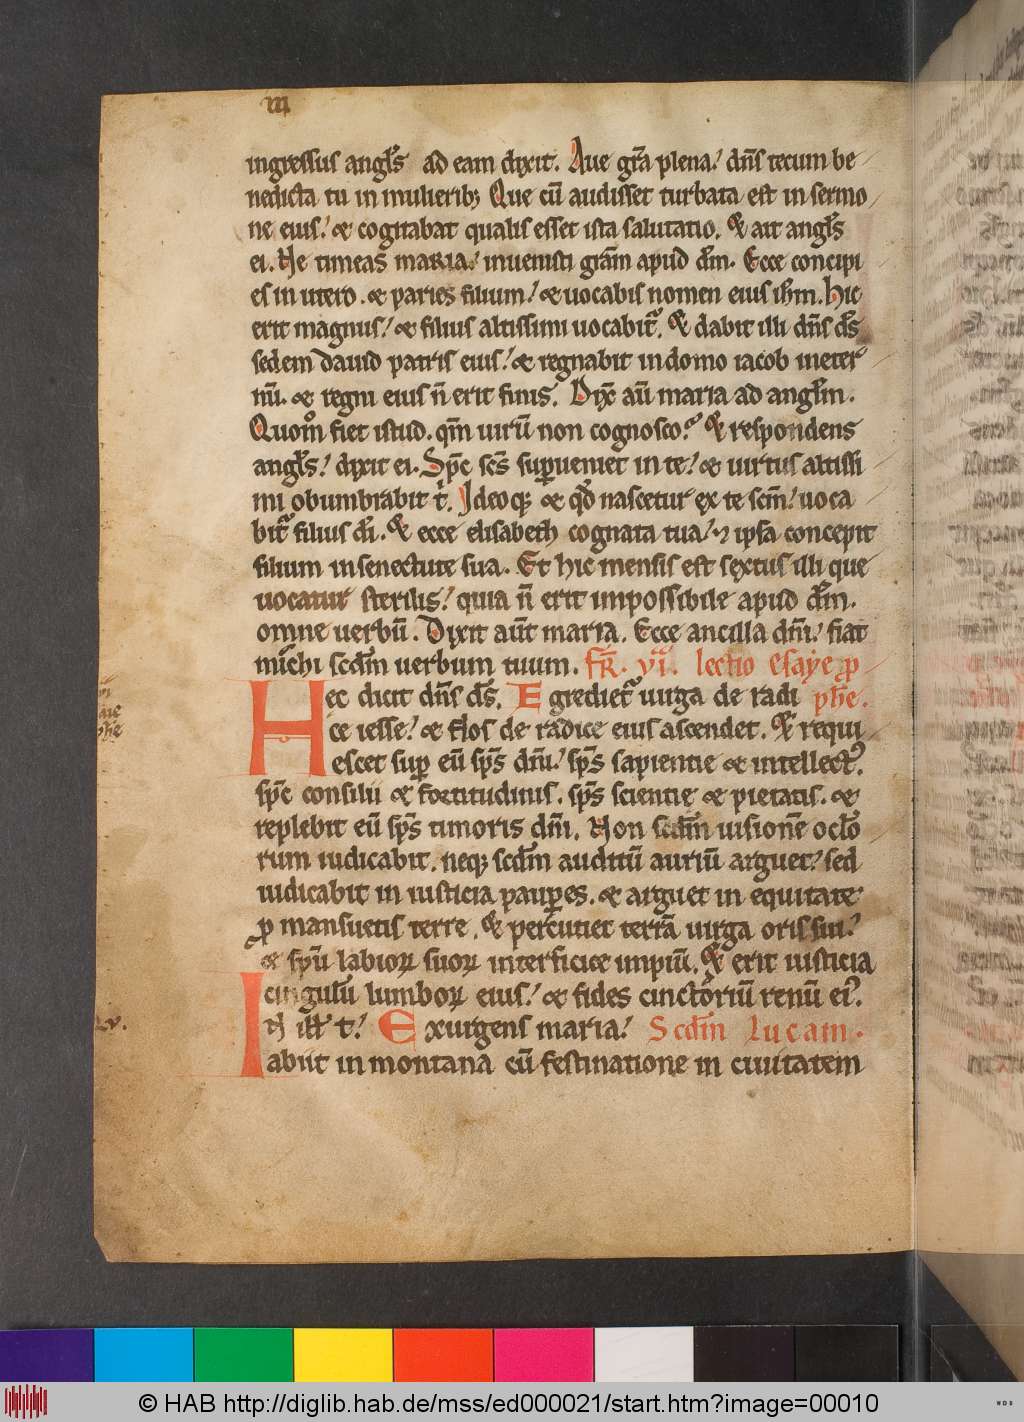 III
ingressus angl̄s ad eam dixit. Aue gr̄a plena! dn̄s tecum be
nedicta tu in mulierib; Que cū audisset turbata est in sermo
ne eius! & cogitabat qualis esset ista salutatio. & ait angl̄s
ei. Ne timeas maria! inuenisti gr̄am apud dm̄. Ecce concipi
es in utero. & paries filium! & uocabis nomen eius ihm̄. hic
erit magnus! & filius altissimi uocabit᷑. & dabit illi dn̄s ds̄
sedem dauid patris eius! & regnabit in domo iacob in eter
nū. & regni eius n̄ erit finis. Dix̄ aū maria ad angl̄m.
Quom̊ fiet istud. qm̄ uirū non cognosco? & respondens
angl̄s! dixit ei. Sp̄c sc̄s sup̱ueniet in te! & uirtus altissi
mi obumbrabit t̄. Ideoq; & qd̄ nascetur ex te scm̄! uoca
bit᷑ filius di̅. & ecce elisabeth cognata tua! ⁊ ipsa concepit
filium in senectute sua. Et hic mensis est sextus illi que
uocatur sterilis! quia n̄ erit impossibile apud dm̄.
omne uerbū. Dixit aūt maria. Ecce ancilla dn̄i! fiat
michi scdm̄ uerbum tuum. fr̄. vi. lectio esaye p̱
Hec dicit dn̄s ds̄. Egrediet᷑ uirga de radi phe̅.
ce iesse! & flos de radice eius ascendet. & requi
escet sup̱ eū sp̄s dn̄i! sp̄s sapientie & intellect᷒.
sp̄c consilii & fortitudinis. sp̄s scientie & pietatis. &
replebit eū sp̄s timoris dn̄i. Non scdm̄ uisionē oclo̅
rum iudicabit. neq; scdm̄ auditū auriū arguet! sed
iudicabit in iusticia paup̱es. & arguet in equitate
ꝓ mansuetis terre. & percutiet terrā uirga oris sui!
& sp̄u labioꝝ suoꝝ interficiet impiū. & erit iusticia
cingulū lumboꝝ eius! & fides cinctoriū renū ei᷒.
IN ill̄ t̄! Exurgens maria! Scdm̄ lucam.
lv.
abiit in montana cū festinatione in ciuitatem
© HAB http://diglib.hab.de/mss/ed000021/start.htm?image=00010